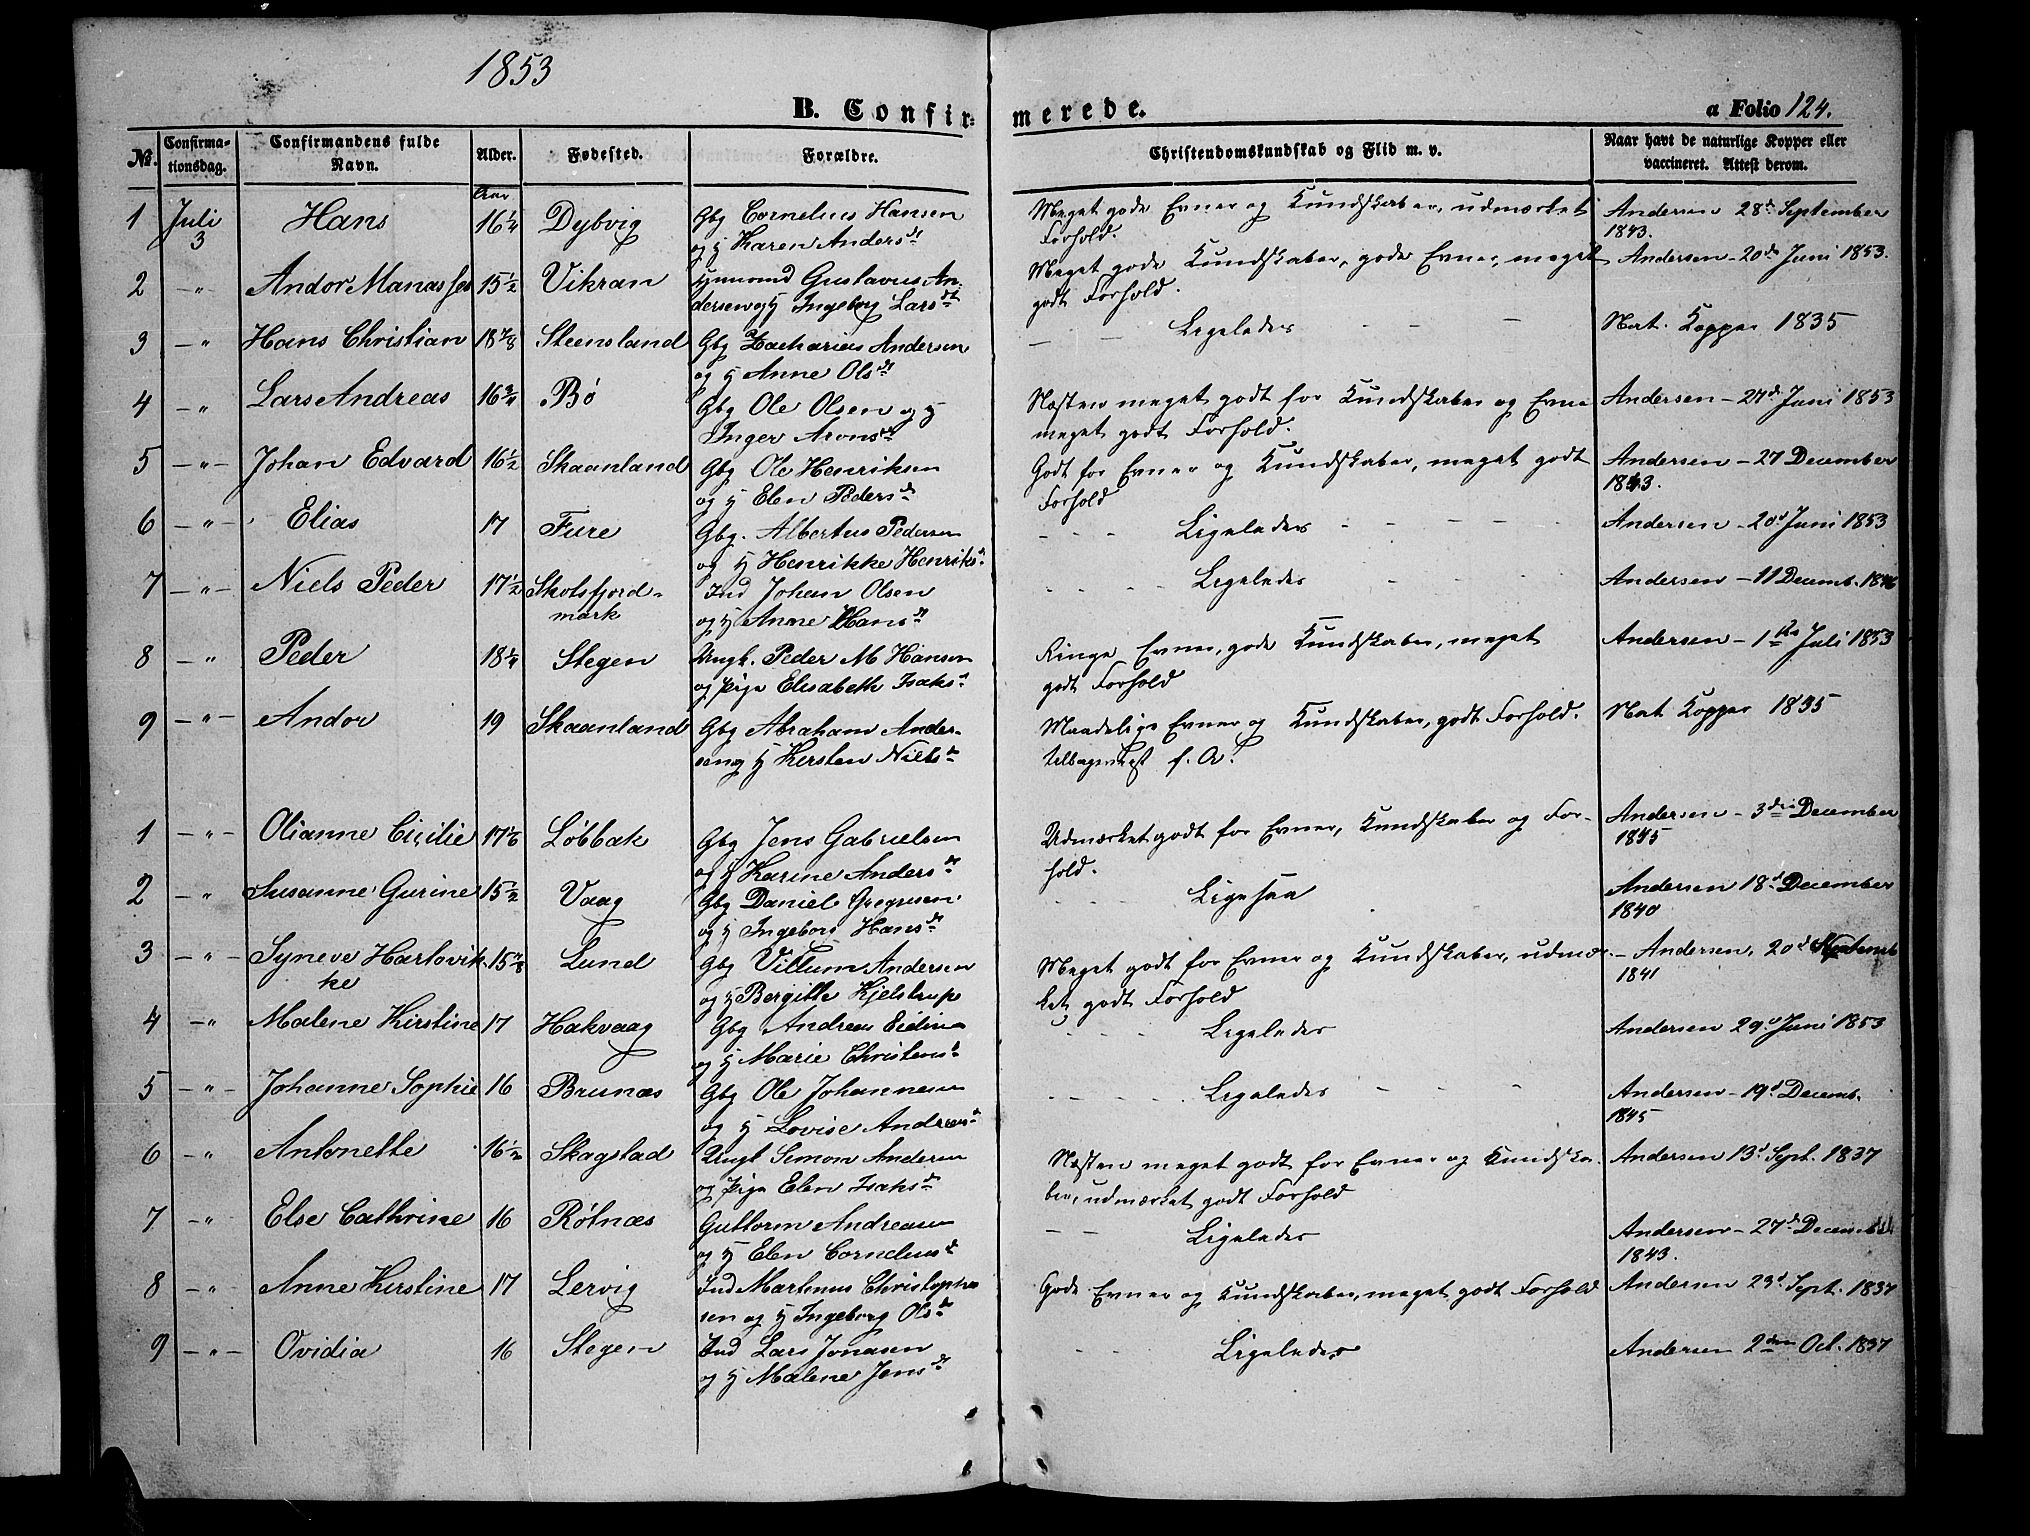 1853
B. Confirmerede.
a Folio 124.
No. Confirmationsdag. Confirmandens fulde Navn. Alder. Fødested. Forældre. Christendomskundskab og Flid m. v. Naar havt de naturlige Kopper eller vaccineret. Attest derom.
Aar
1 Juli 3 Hans 16 1/4 Dybvig Gbg Cornelius Hansen Meget gode Evner og Kundskaber, udmærket Andersen 28d September
og H Karen Andersdt Forhold. 1843.
2 -"- Andor Manasses 15 1/2 Vikran Huusmd Gustavus An- Meget gode Kundskaber, gode Evner, meget Andersen - 20de Juni 1853.
dersen og H Ingeborg Larsdt godt Forhold.
3 -"- Hans Christian 18 7/8 Steensland Gbg Zacharias Andersen - - Ligeledes - - - Nat. Kopper 1835
og H Anne Olsdt
4 -"- Lars Andreas 16 3/4 Bø Gbg Ole Olsen og H Næsten meget godt for Kundskaber og Evne Andersen - 27d Juni 1853
Inger Aronsdt meget godt Forhold.
5 -"- Johan Edvard 16 1/2 Skaanland Gbg Ole Henriksen Godt for Evner og Kundskaber, meget godt Andersen - 27 December
og H Elen Pedersdt Forhold 1843.
6 -"- Elias 17 Fure Gbg. Albertus Pedersen - - - Ligeledes - - - - Andersen - 20d Juni 1853
og H Henrikke Henriksdt
7 -"- Niels Peder 17 1/2 Skotsfjord- Ind Johan Olsen - - - - Ligeledes - - - Andersen - 11 Decemb. 1846
mark og H Anne Hansdt
8 -"- Peder 18 1/4 Stegen Ungk. Peder M Hansen Ringe Evner, gode Kundskaber, meget Andersen - 1ste Juli 1853
og Pige Elisabeth Isaksdt godt Forhold
9 -"- Andor 19 Skaanland Gbg Abraham Ander- Maadelige Evner og Kundskaber, godt Forhold. Nat Kopper 1835
sen og H Kirsten Nielsdt tilbageviist f. A.
1 -"- Olianne Cicilie 17 1/6 Løbbak Gbg Jens Gabrielsen Udmærket godt for Evner, Kundskaber og For- Andersen - 3die December
og H Karine Andersdt hold. 1845
2 -"- Susanne Gurine 15 1/2 Vaag Gbg Daniel Gregusen - - - Ligesaa Andersen 18d December
og H Ingeborg Hansdt 1840
3 -"- Syneve Hartvik- 15 7/8 Lund Gbg Villum Andersen Meget godt for Evner og Kundskaber, udmær- - Andersen, 20d
ke og H Bergitte Kjelstrup ket godt Forhold 1841
4 -"- Malene Kirstine 17 Hakvaag Gbg Andreas Eidin - - - Ligeledes Andersen 29d Juni 1853
og H Marie Christensdt
5 -"- Johanne Sophie 16 Brunæs Gbg Ole Johannesen - - - - - Ligeledes - - - Andersen - 19d Decemb.
og H Lovise Andreasdt 1845
6 -"- Antonette 16 1/2 Skagstad Ungk Simon Andersen Næsten meget godt for Evner og Kundska- Andersen 13d Sept. 1837
og Pige Elen Isaksdt ber, udmærket godt Forhold
7 -"- Else Cathrine 16 Røtnæs Guttorm Andreasen - - Ligeledes Andersen - 27d December
og H Elen Corneliusdt 1843.
8 -"- Anne Kirstine 17 Lervig Ind Martinus Christophe Gode Evner og Kundskaber, meget godt Forhold Andersen 23d Sept. 1837
sen og H Ingeborg Olsdt
9 -"- Ovidia 16 Stegen Ind Lars Jonasen - - - Ligeledes Andersen 2den Oct. 1837
og H Malene Jensdt